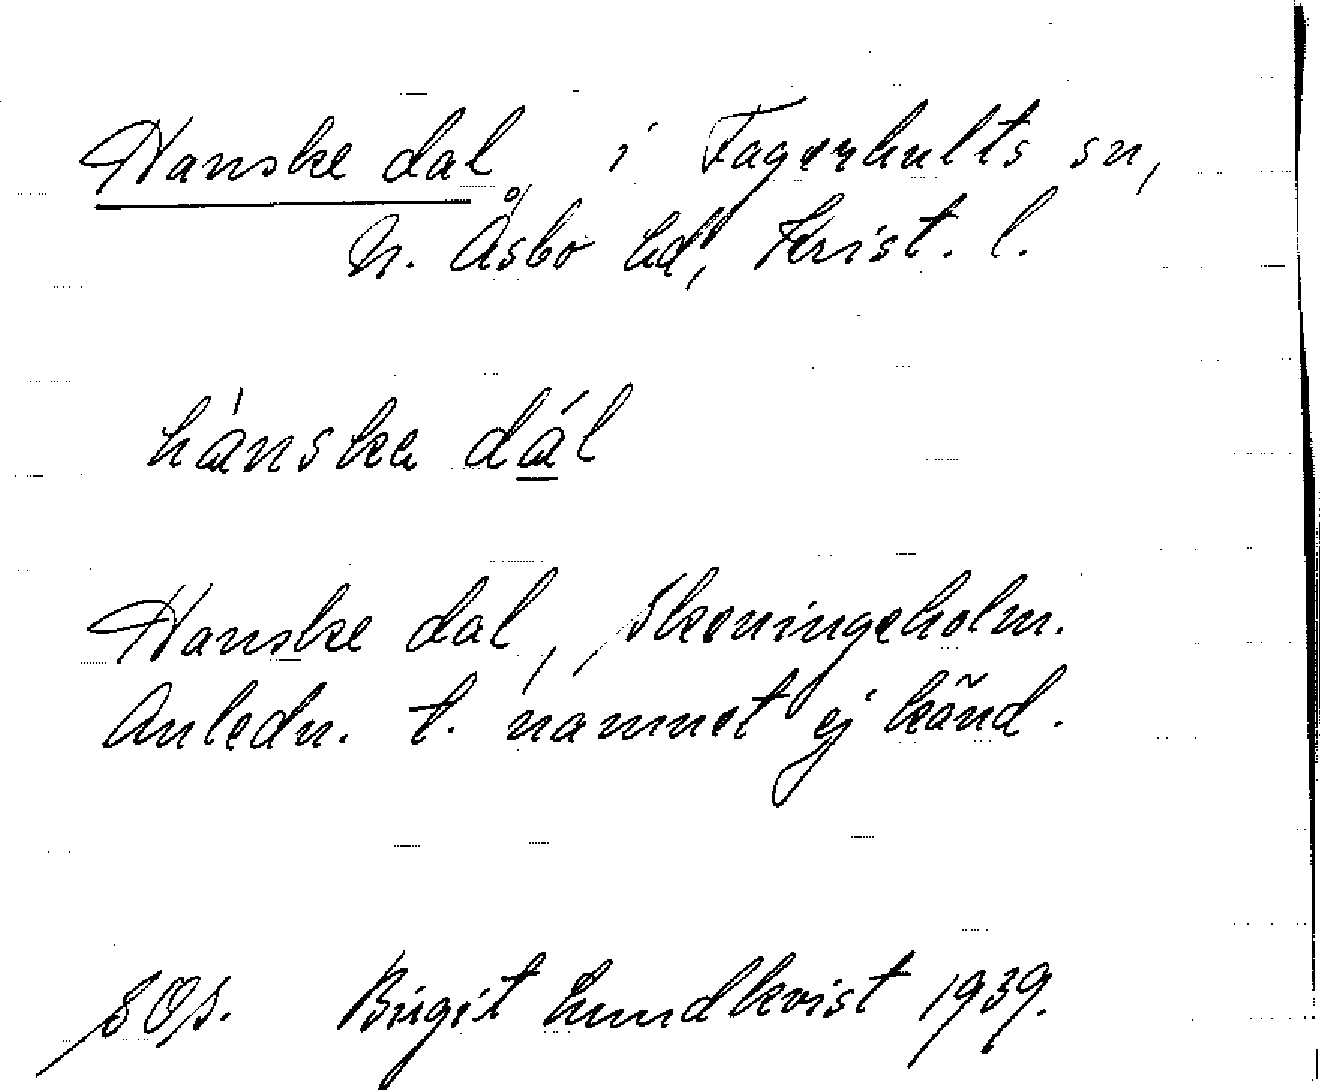 Hanske dal, i Fagerhults sn,
N. Åsbo hd, Krist. l.
hànska dál
Hanske dal, Skeningeholm.
Anledn. t. namnet ej känd.
SOS. Birgit Lundkvist 1939.